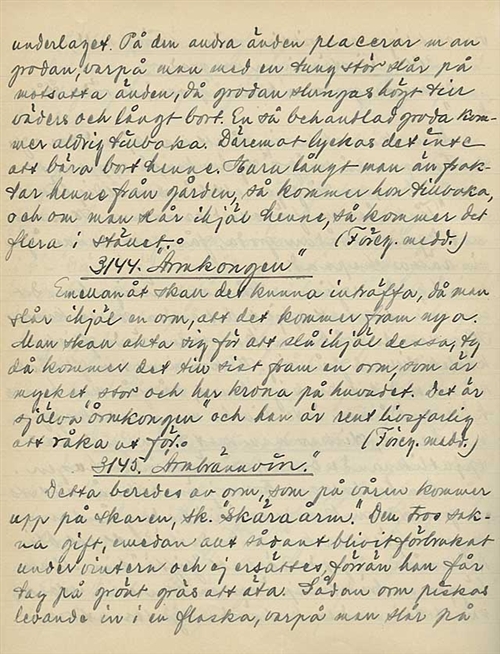 underlaget. På den andra änden placerar man
grodan, varpå man med en tung stör slår på
motsatta änden, då grodan slungas högt till
väders och långt bort. En så behandlad groda kom-
mer aldrig tillbaka. Däremot lyckas det inte
att bära bort henne. Huru långt man än frak-
tar henne från gården, så kommer hon tillbaka,
och om man slår ihjäl henne, så kommer det
flera i stället. (Föreg. medd.)
3144. "Ormkongen"
Emellanåt skall det kunna inträffa, då man
slår ihjäl en orm, att det kommer fram nya.
Man skall akta sig för att slå ihjäl dessa, ty
då kommer det till sist fram en orm, som är
mycket stor och har krona på huvudet. Det är
själva "ormkongen" och han är rent livsfarlig
att råka ut för. (Föreg. medd.)
3145. "Ormbrännvin."
Detta beredes av orm, som på våren kommer
upp på skaren, sk. "Skäraårm." Den tros sak-
na gift, emedan allt sådant blivit förbrukat
under vintern och ej ersättes, förrän han får
tag på grönt gräs att äta. Sådan orm piskas
levande in i en flaska, varpå man slår på